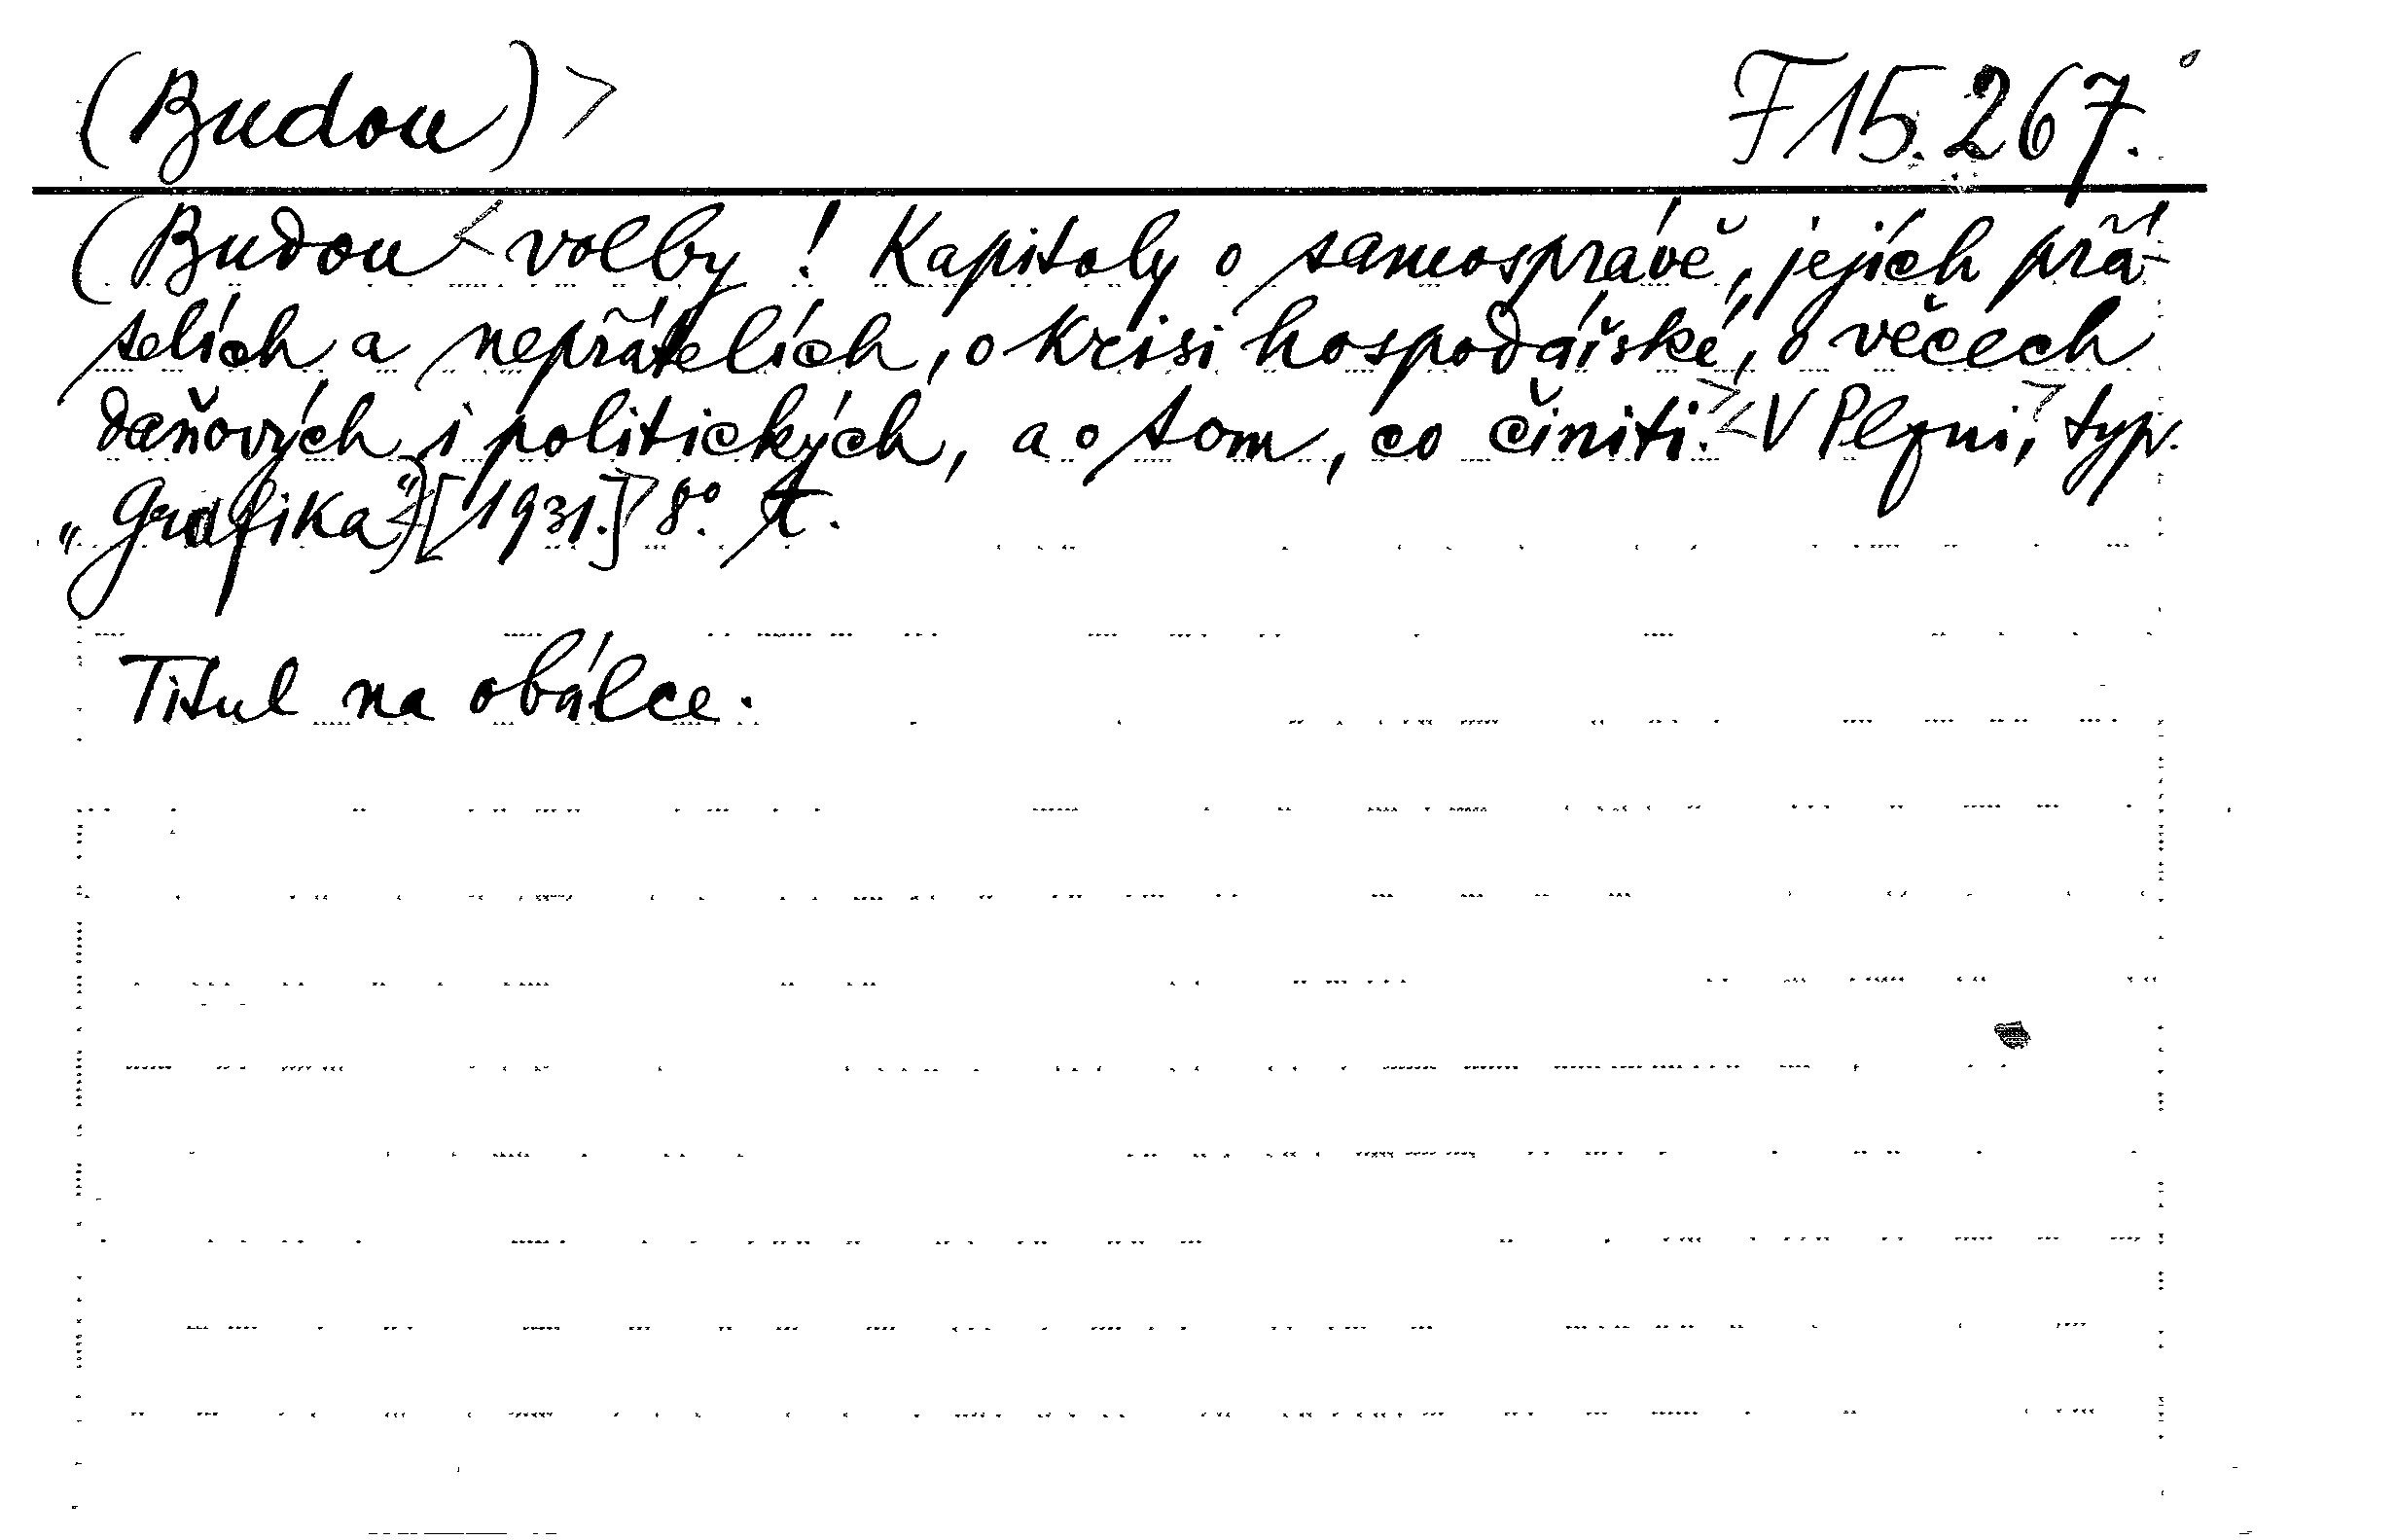 (Budou)> F 15.267.
(Budou < volby! Kapitoly o samosprávě, jejích přá-
telích a nepřátelích, o krisi hospodářské, o věcech
daňových i politických, a o tom, co činiti.> < V Plzni,> typ.
„Grafika“) < [1931.]> 8°. t.
Titul na obálce.